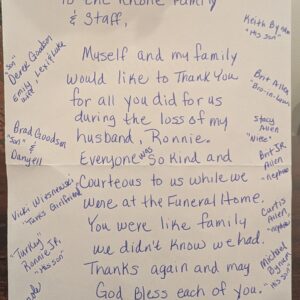 To the Rhone Family
& Staff,
Myself and my family
would like to Thank You
for all you did for us
during the loss of my
husband, Ronnie.
Everyone was so kind and
Courteous to us while we
were at the Funeral Home.
You were like family
we didn't know we had.
Thanks again and may
God bless each of you.
"son"
Derek Goodson
Emily, Lexi & Luke
Brad Goodson
"son" &
Danyell
Vicki Wiesnewski
"Turk's Girlfriend"
"Turkey"
Ronnie Jr.
"His son"
Keith Bynum
"His son"
Brit Allen
"Bro-in-law"
Stacy
Allen
"Niece"
Brit JR
Allen
"nephew"
Curtis
Allen
"nephew"
Michael
Bynum
"His son"